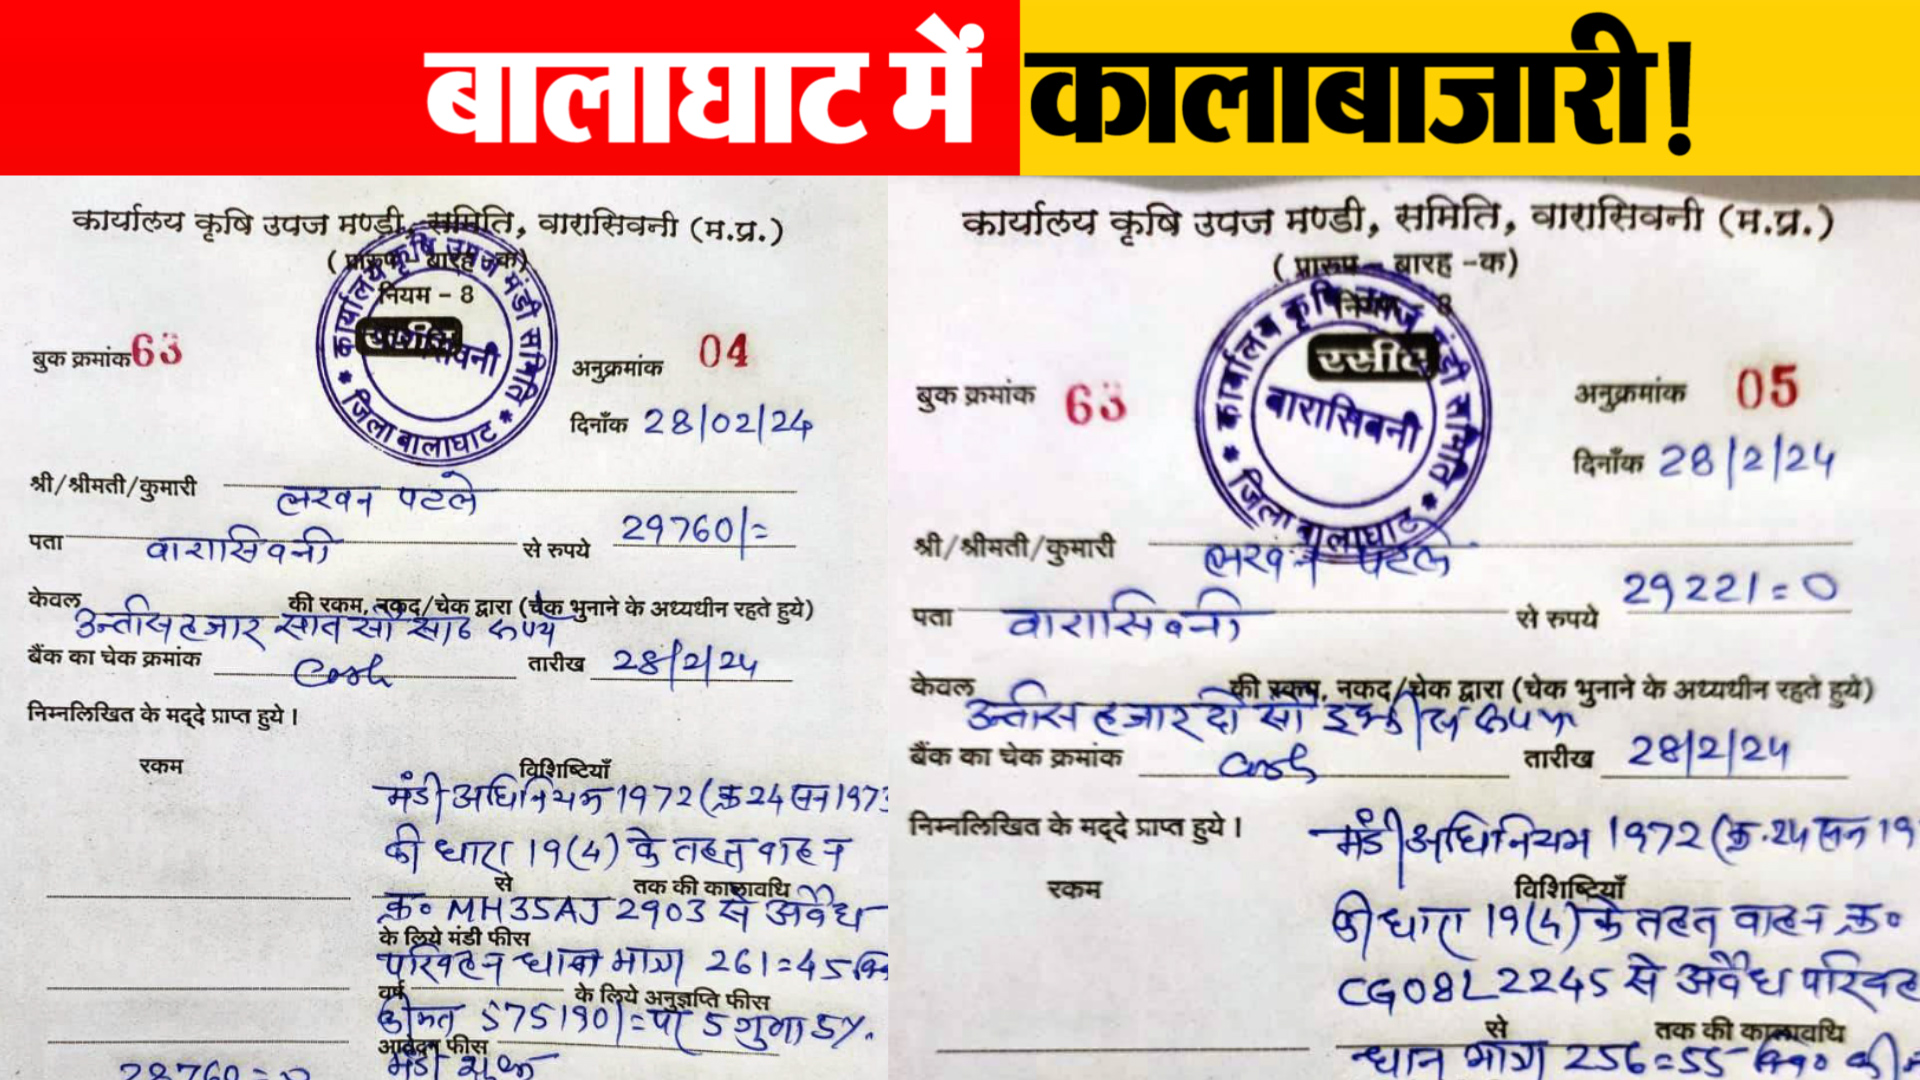 बालाघाट में कालाबाजारी!
कार्यालय कृषि उपज मण्डी, समिति, वारासिवनी (म.प्र.)
( प्रारूप - बारह -क)
नियम - 8
बुक क्रमांक 63
अनुक्रमांक 04
कार्यालय कृषि उपज मंडी समिति
वारासिवनी
* जिला बालाघाट *
दिनाँक 28/02/24
श्री/श्रीमती/कुमारी लखन पटले
पता वारासिवनी से रुपये 29760/=
केवल की रकम, नकद/चेक द्वारा (चेक भुनाने के अध्यधीन रहते हुये)
उन्तीस हजार सात सौ साठ रूपये
बैंक का चेक क्रमांक Cash तारीख 28/2/24
निम्नलिखित के मद्दे प्राप्त हुये ।
रकम विशिष्टियाँ
मंडी अधिनियम 1972 (क्र 24 सन 1973
की धारा 19(4) के तहत वाहन
से तक की कालावधि
क्र० MH35AJ 2903 से अवैध
के लिये मंडी फीस
परिवहन धान मात्रा 261=45
वर्ष के लिये अनुज्ञप्ति फीस
कीमत 575190/= पर 5 गुना 5%.
आवेदन फीस
मंडी शुल्क
कार्यालय कृषि उपज मण्डी, समिति, वारासिवनी (म.प्र.)
( प्रारूप - बारह -क)
नियम - 8
रसीद
बुक क्रमांक 63
अनुक्रमांक 05
कार्यालय कृषि उपज मंडी समिति
वारासिवनी
* जिला बालाघाट *
दिनाँक 28/2/24
श्री/श्रीमती/कुमारी लखन पटले
पता वारासिवनी से रुपये 29221=0
केवल की रकम, नकद/चेक द्वारा (चेक भुनाने के अध्यधीन रहते हुये)
उन्तीस हजार दो सौ इक्कीस रूपये
बैंक का चेक क्रमांक Cash तारीख 28/2/24
निम्नलिखित के मद्दे प्राप्त हुये ।
मंडी अधिनियम 1972 (क्र.24 सन 19
रकम विशिष्टियाँ
की धारा 19(4) के तहत वाहन क्र०
CG08L2245 से अवैध
से तक की कालावधि
धान मात्रा 256=55